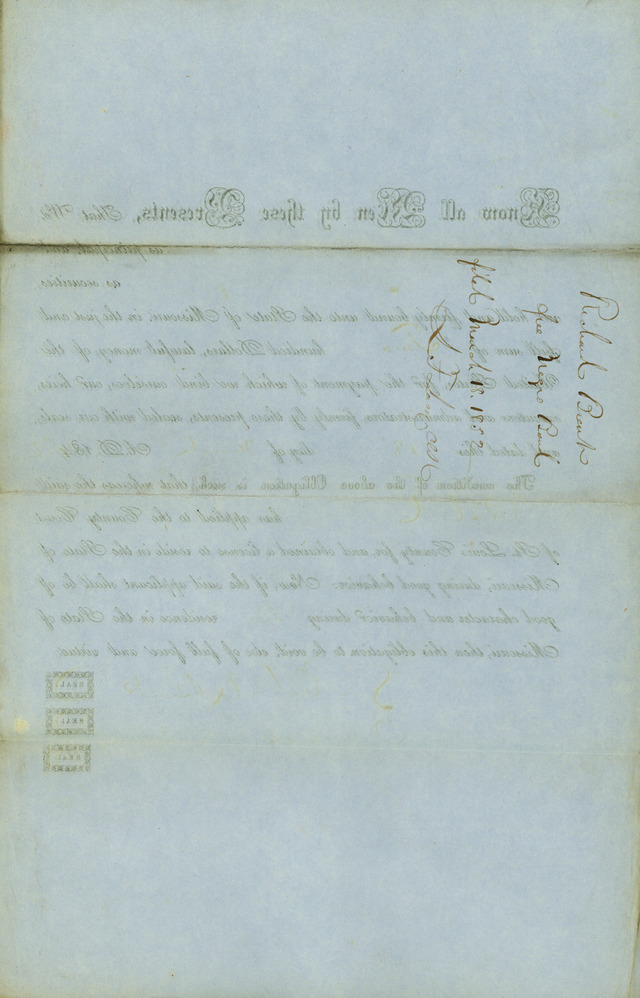 Richard
free Negro Bond
filed March 18.
Know all Men by these Presents, That We
as principal, and
as securities
firmly bound unto the State of Missouri, in the just and
sum of
hundred Dollars, lawful money of the
the payment of which we bind ourselves, our heirs,
administrators, firmly by these presents, sealed with our seals,
dated this
day of
A.D. 184
The condition of the above Obligation is such, that whereas the said
has applied to the County Court
of St. Louis County for, and obtained a license to reside in the State of
Missouri, during good behavior: Now, if the said applicant shall be of
good character and behavior during
residence in the State of
Missouri, then this obligation to be void, else of full force and virtue.
SEAL
SEAL
SEAL